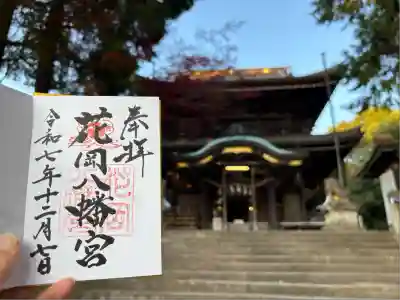 奉拝
花岡八幡宮
令和七年十二月七日